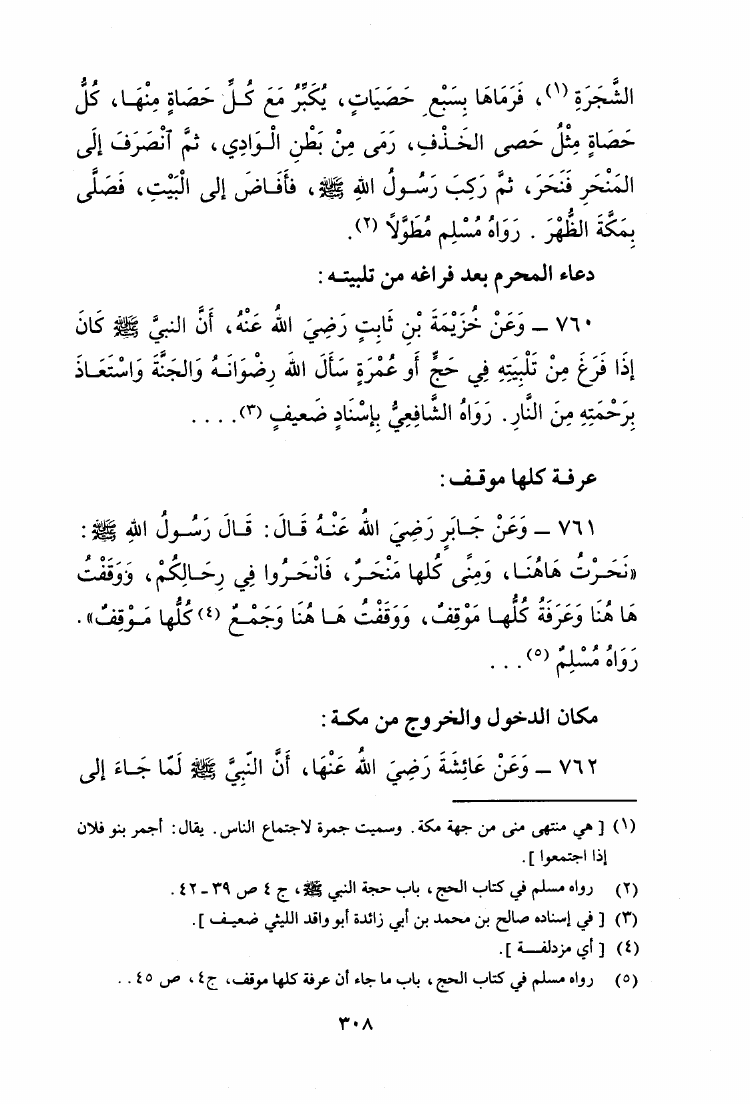 الشَّجَرَةِ (١)، فَرَمَاهَا بِسَبْعِ حَصَيَاتٍ، يُكَبِّرُ مَعَ كُلِّ حَصَاةٍ مِنْهَا، كُلُّ
حَصَاةٍ مِثْلُ حَصى الخَذْفِ، رَمَى مِنْ بَطْنِ الْوَادِي، ثمَّ آنْصَرَفَ إلَى
المَنْحَرِ فَنَحَرَ، ثمَّ رَكِبَ رَسُولُ اللهِ ﷺ، فَأَفَاضَ إلى الْبَيْتِ، فَصَلَّى
بِمَكَّةَ الظُّهْرَ . رَوَاهُ مُسْلِم مُطَوَّلاً (٢).
دعاء المحرم بعد فراغه من تلبيته :
٧٦٠ ــ وَعَنْ خُزَيْمَةَ بْنِ ثَابِتٍ رَضِيَ اللهُ عَنْهُ، أَنَّ النبيَّ ﷺ كَانَ
إذَا فَرَغَ مِنْ تَلْبِيَتِهِ فِي حَجٍّ أو عُمْرَةٍ سَأَلَ اللهَ رِضْوَانَهُ وَالجَنَّةَ وَاسْتَعَاذَ
بِرَحْمَتِهِ مِنَ النَّارِ. رَوَاهُ الشَّافِعِيُّ بِإسْنَادٍ ضَعيفٍ (٣). . . .
عرفة كلها موقف :
٧٦١ ــ وَعَنْ جَابَرٍ رَضِيَ اللهُ عَنْهُ قَالَ: قَالَ رَسُولُ اللهِ ﷺ :
«نَحَرْتُ هَاهُنَا، وَمِنًى كُلها مَنْحَرٌ، فَانْحَرُوا فِي رِحَالِكُمْ، وَوَقَفْتُ
هَا هُنَا وَعَرَفَةُ كُلُّهَا مَوْقِفٌ، وَوَقَفْتُ هَا هُنَا وَجَمْعٌ (٤) كُلُّها مَوْقِفٌ».
رَوَاهُ مُسْلِمٌ (٥) . . .
مكان الدخول والخروج من مكة :
٧٦٢ ــ وَعَنْ عَائِشَةَ رَضِيَ اللهُ عَنْهَا، أَنَّ النَّبِيَّ ﷺ لَمّا جَاءَ إلى
(١) [ هي منتهى منى من جهة مكة. وسميت جمرة لاجتماع الناس. يقال: أجمر بنو فلان
إذا اجتمعوا ].
(٢) رواه مسلم في كتاب الحج، باب حجة النبي ﷺ، ج ٤ ص ٣٩ ـ ٤٢ .
(٣) [ في إسناده صالح بن محمد بن أبي زائدة أبو واقد الليثي ضعيف ].
(٤) [ أي مزدلفة ].
(٥) رواه مسلم في كتاب الحج، باب ما جاء أن عرفة كلها موقف، ج٤، ص ٤٥ . .
٣٠٨